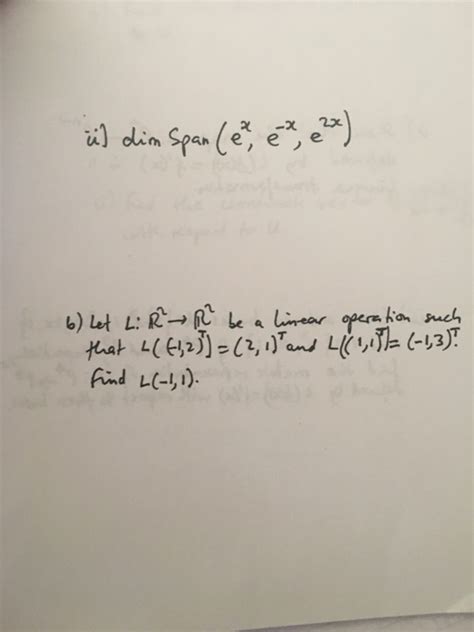 ii) dim Span (e^x, e^-x, e^2x)
6) Let L: R² → R² be a linear operation such
that L((-1,2)^T] = (2,1)^T and L[(1,1)^T] = (-1,3)^T.
Find L(-1,1).